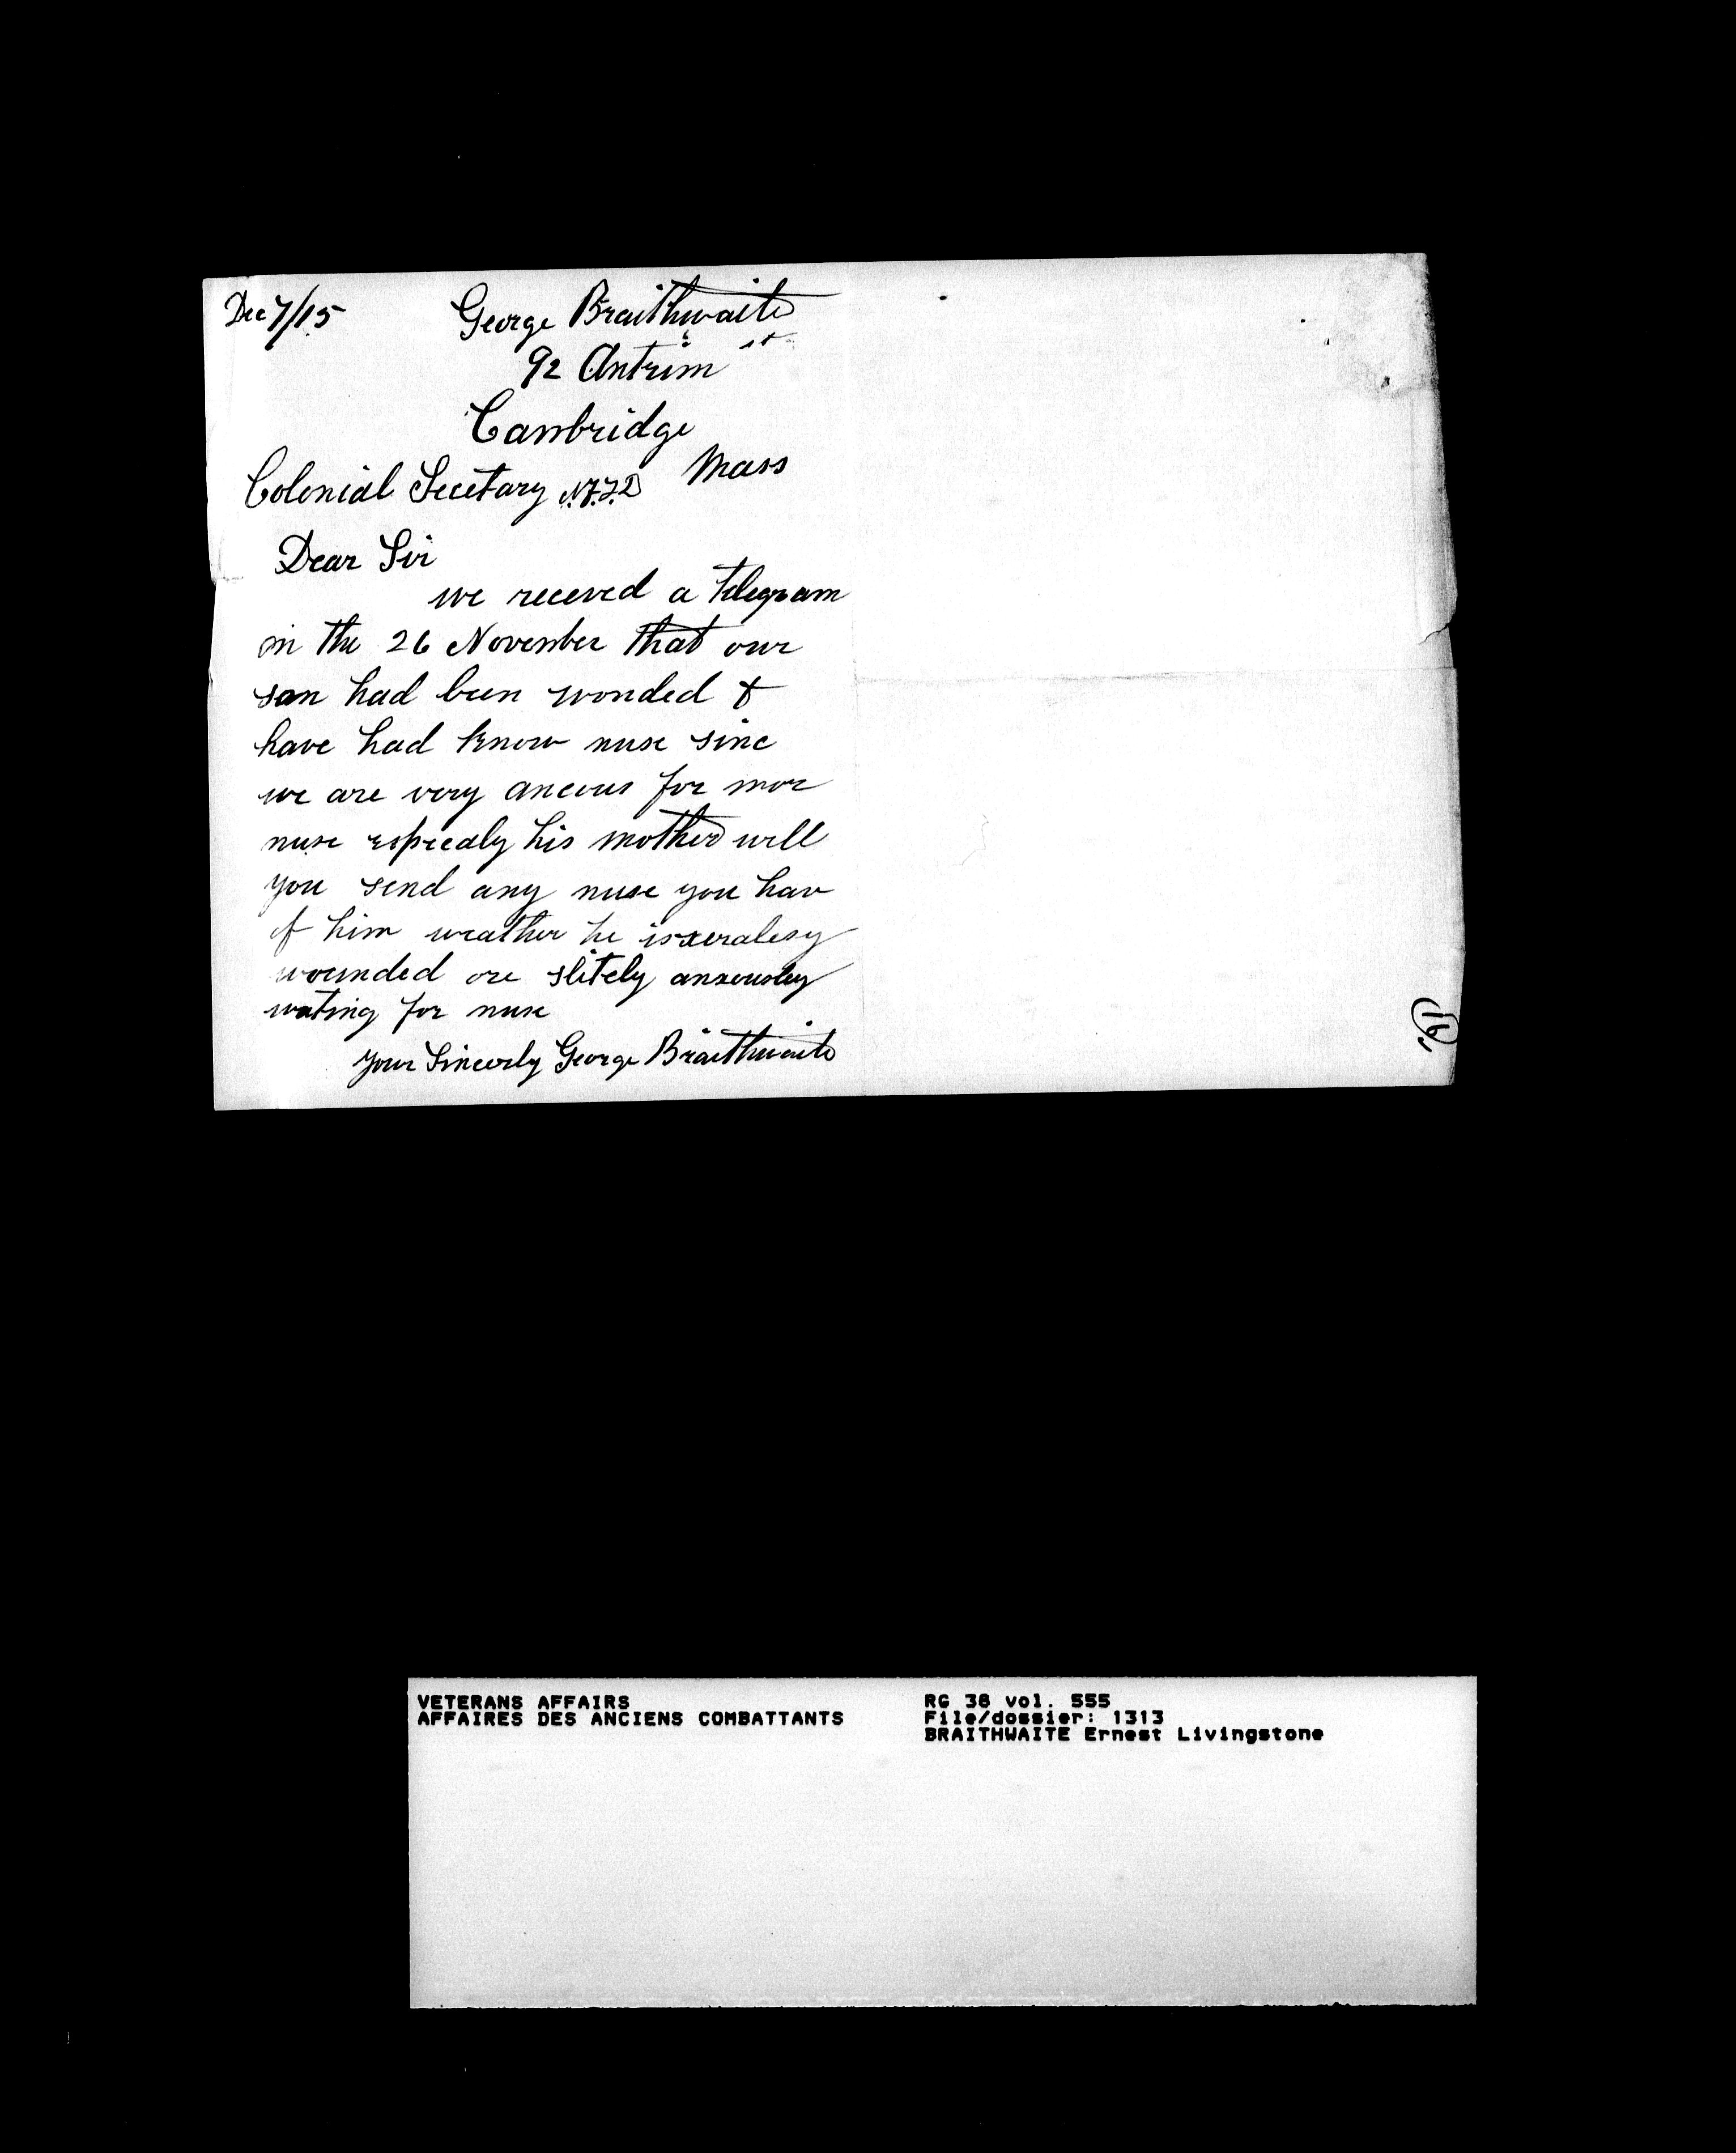 Dec 7/15
George Braithwaite
92 Antrim st
Cambridge
Mass
Colonial Secetary N.F.L.D
Dear Sir
we receved a telegram
on the 26 November that our
son had been wonded &
have had know nuse sinc
we are very ancous for mor
nuse espicealy his mother will
you send any nuse you hav
of him weather he is
wounded ore slitely anxousley
wating for nuse
your Sincerly George Braithwaite
19.
VETERANS AFFAIRS
AFFAIRES DES ANCIENS COMBATTANTS
RG 38 vol. 555
File/dossier: 1313
BRAITHWAITE Ernest Livingstone